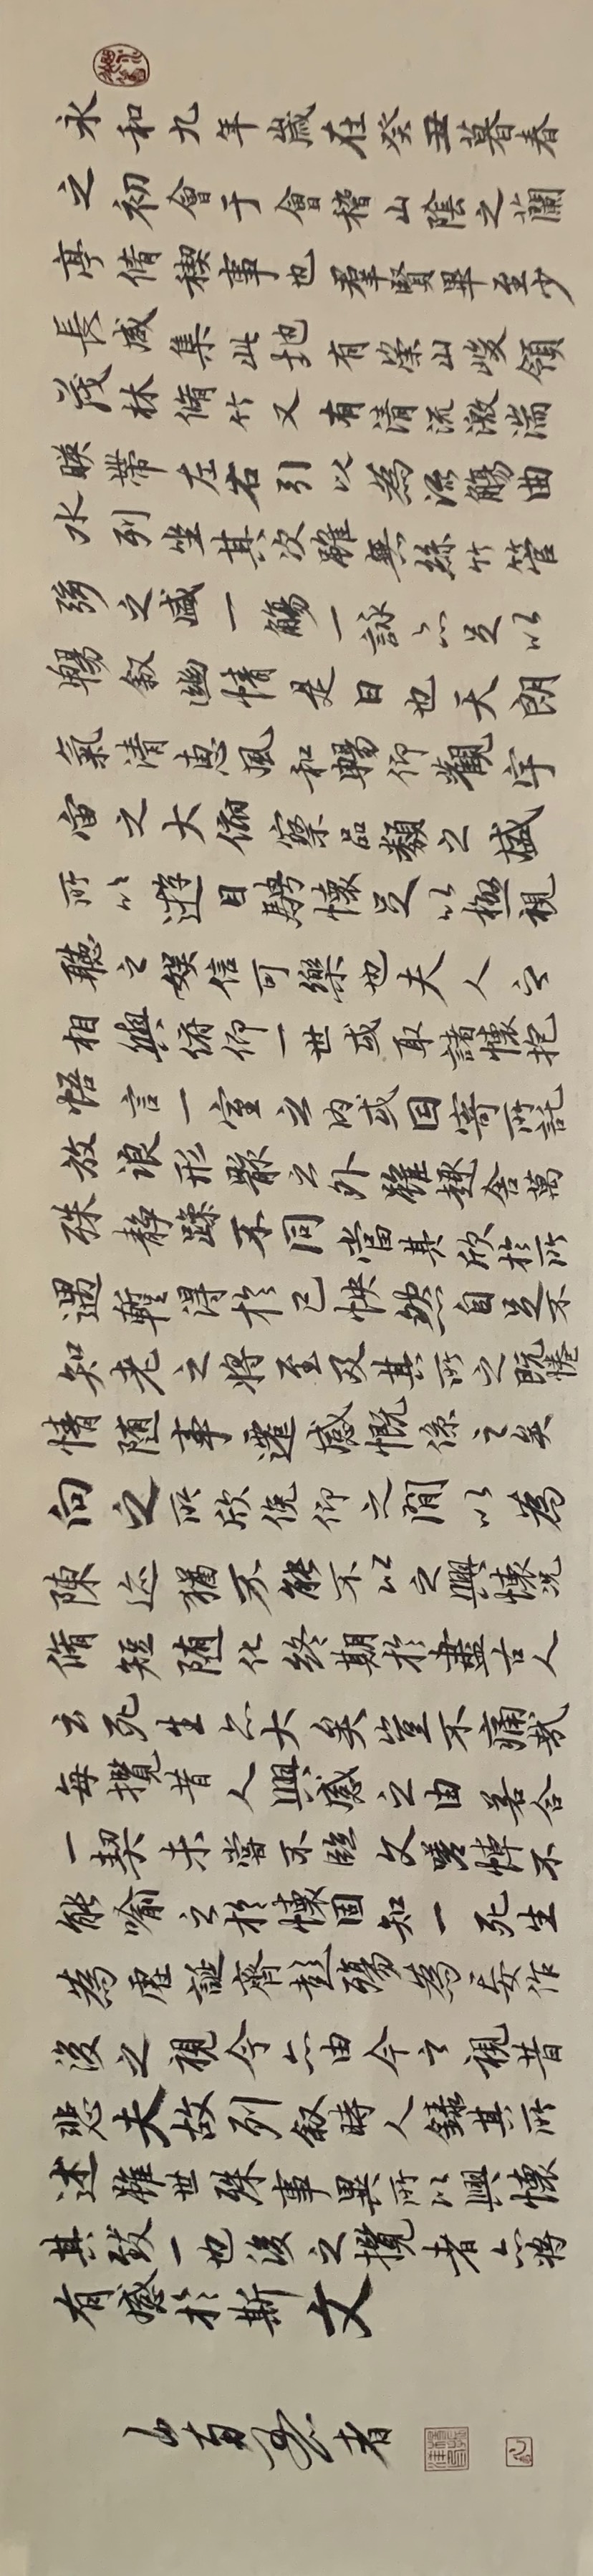 永和九年歲在癸丑暮春
之初會于會稽山陰之蘭
亭脩稧事也羣賢畢至少
長咸集此地有崇山峻領
茂林脩竹又有清流激湍
暎帶左右引以為流觴曲
水列坐其次雖無絲竹管
弦之盛一觴一詠亦足以
暢叙幽情是日也天朗
氣清惠風和暢仰觀宇
宙之大俯察品類之盛
所以遊目騁懷足以極視
聽之娛信可樂也夫人之
相與俯仰一世或取諸懷抱
悟言一室之內或因寄所託
放浪形骸之外雖趣舍萬
殊靜躁不同當其欣於所
遇暫得於己怏然自足不
知老之將至及其所之既惓
情隨事遷感慨係之矣
向之所欣俛仰之閒以為
陳迹猶不能不以之興懷況
脩短隨化終期於盡古人
云死生亦大矣豈不痛哉
每攬昔人興感之由若合
一契未嘗不臨文嗟悼不
能喻之於懷固知一死生
為虛誕齊彭殤為妄作
後之視今亦由今之視昔
悲夫故列叙時人錄其所
述雖世殊事異所以興懷
其致一也後之攬者亦將
有感於斯文
者